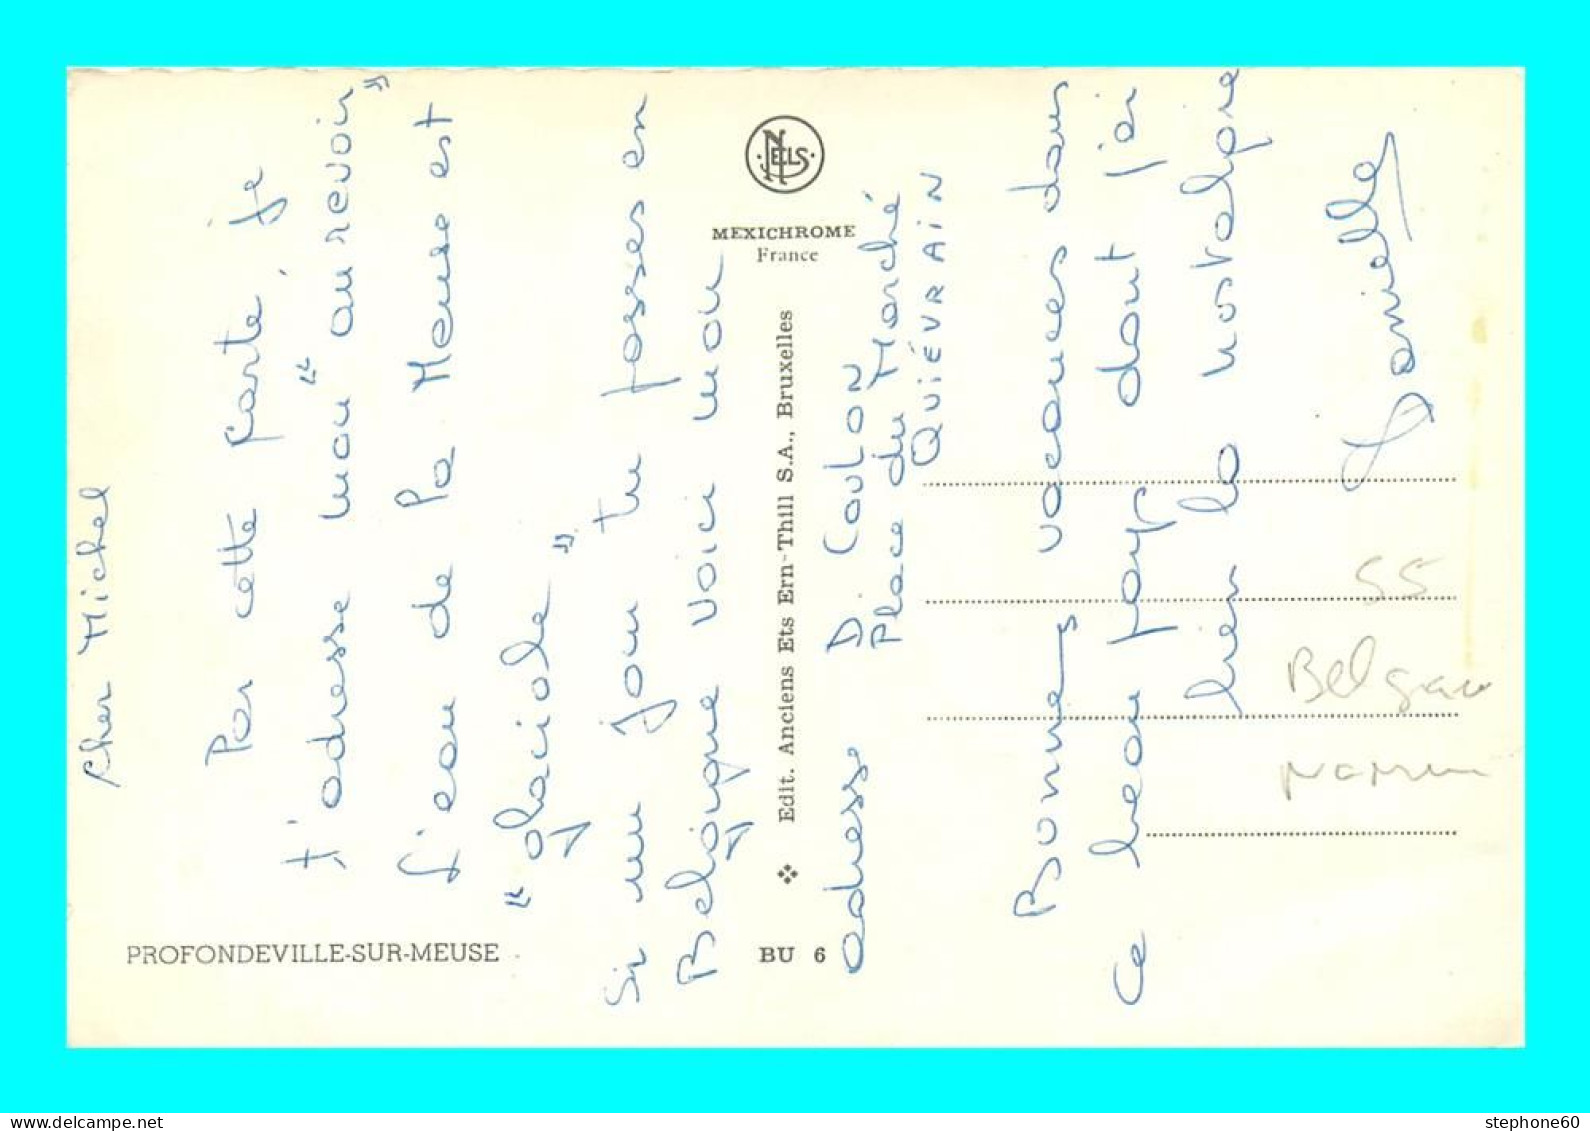 Cher Michel
Par cette carte, je
t'adresse mon "au revoir"
l'eau de la Meuse est
"glaciale"
Si un jour tu passes en
Belgique voici mon
adresse D. COULON
Place du Marché
QUIÉVRAIN
Bonnes vacances dans
ce beau pays dont j'ai
bien la nostalgie
Danielle
PROFONDEVILLE-SUR-MEUSE
BU 6
Edit. Anciens Ets Ern-Thill S.A., Bruxelles
NELS
MEXICHROME
France
55
Namur
stephone60